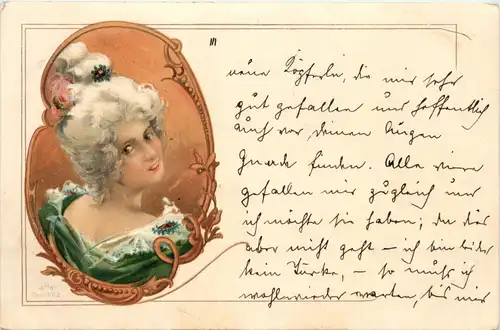 III
neue Köpferln, die mir sehr
gut gefallen und hoffentlich
auch vor deinen Augen
Gnade finden. Alle viere
gefallen mir zugleich und
ich möchte sie haben; da dies
aber nicht geht – ich bin leider
kein Türke, – so muß ich
wohlwieder warten, bis mir